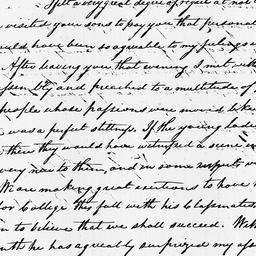 Felt a very great degree of regret at not
visited your sons to pay you that personal
would have been so agreeable to my feelings
After leaving you, that evening I met with
sembly and preached to a multitude of
people whose passions were mov'd like
was a perfect If the young lads
then they would have witnessed a scene
very new to them, and in some respects
We are making great exertions to have
for College this fall with his Classmates
n to believe that we shall succeed. With
nth he has agreeably surprized my